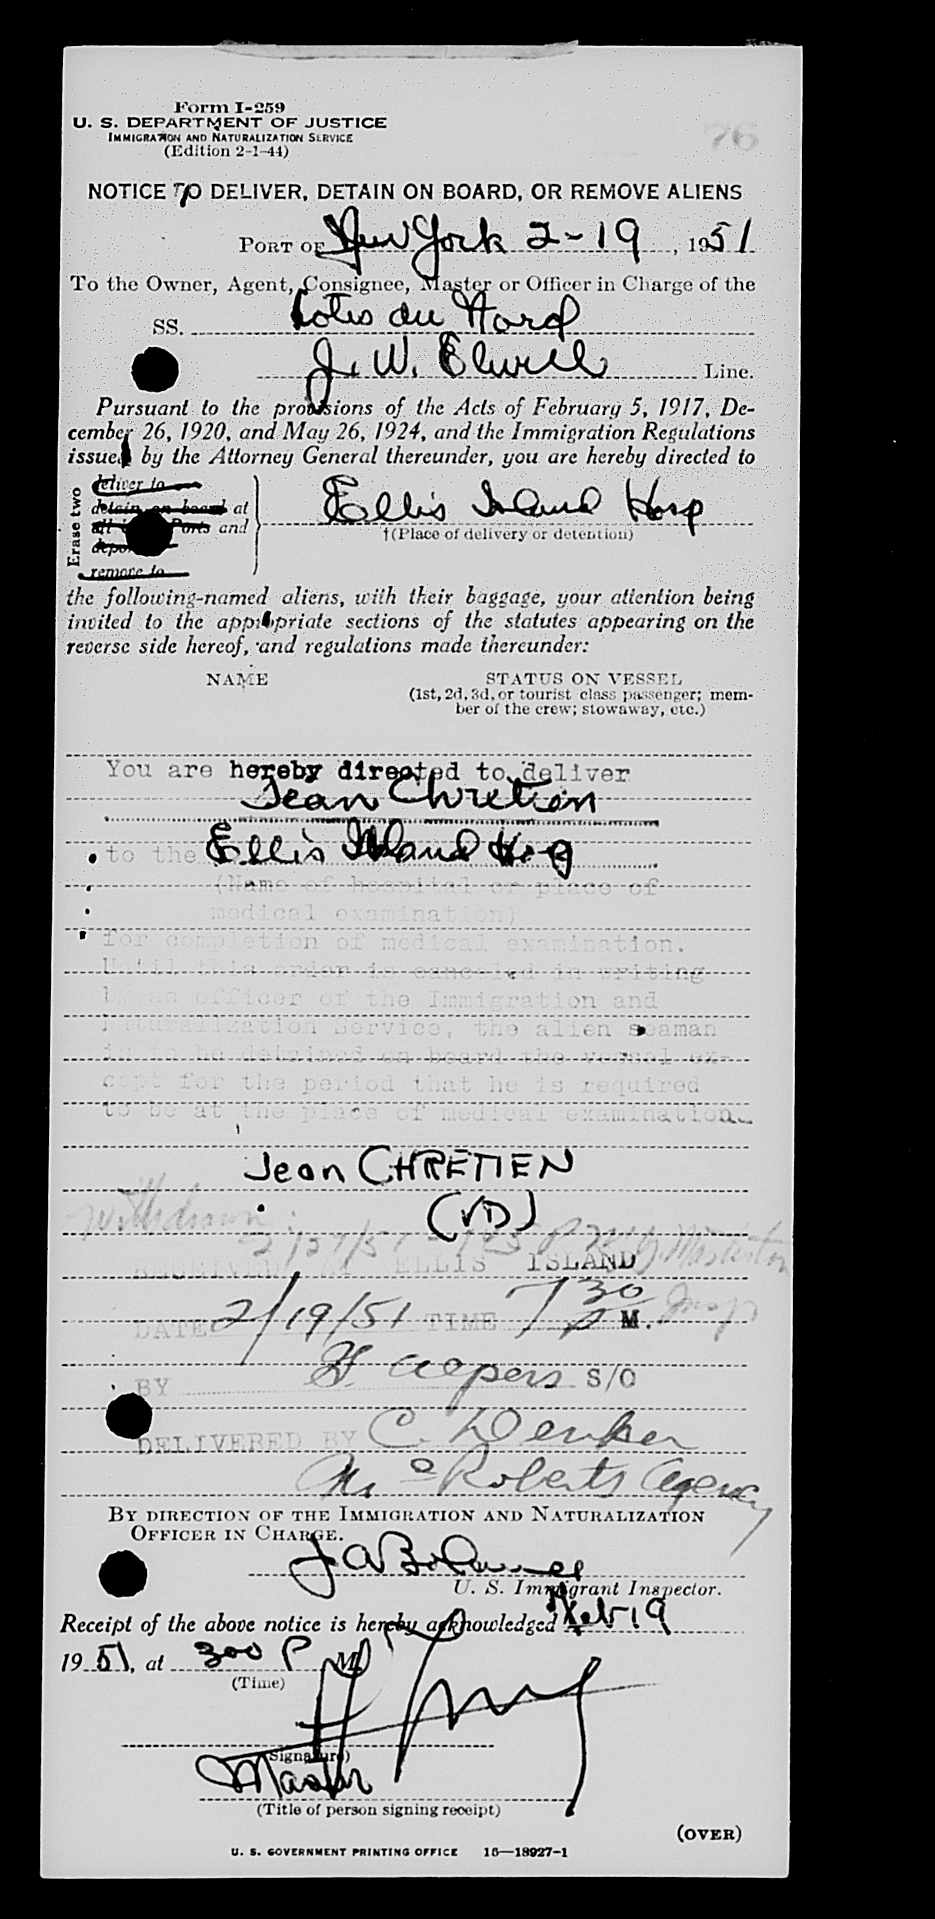 76
Form I-259
U. S. DEPARTMENT OF JUSTICE
IMMIGRATION AND NATURALIZATION SERVICE
(Edition 2-1-44)
NOTICE TO DELIVER, DETAIN ON BOARD, OR REMOVE ALIENS
PORT OF New York 2-19, 1951
To the Owner, Agent, Consignee, Master or Officer in Charge of the
SS. Cotes du Nord
J. W. Elwell Line.
Pursuant to the provisions of the Acts of February 5, 1917, De-
cember 26, 1920, and May 26, 1924, and the Immigration Regulations
issued by the Attorney General thereunder, you are hereby directed to
Erase two
deliver to
detain on board at
all Ports and
remove to
Ellis Island Hosp
†(Place of delivery or detention)
the following-named aliens, with their baggage, your attention being
invited to the appropriate sections of the statutes appearing on the
reverse side hereof, and regulations made thereunder:
NAME STATUS ON VESSEL
(1st, 2d, 3d, or tourist class passenger; mem-
ber of the crew; stowaway, etc.)
You are hereby directed to deliver
Jean Chretien
to the Ellis Island
(Name of hospital or place of
medical examination)
for completion of medical examination.
Until this order is canceled in writing
by an officer of the Immigration and
Naturalization Service, the alien seaman
is to be detained on board the vessel ex-
cept for the period that he is required
to be at the place of medical examination.
Jean CHRETIEN
(VD)
Withdrawn
2/27/51
RECEIVED AT ELLIS ISLAND
DATE 2/19/51 TIME 7 30 P M.
Insp
BY S/O
DELIVERED BY C. Denker
Roberts Agency
BY DIRECTION OF THE IMMIGRATION AND NATURALIZATION
OFFICER IN CHARGE.
U. S. Immigrant Inspector.
Receipt of the above notice is hereby acknowledged Feb 19
1951, at 300 P M.
(Time)
(Signature)
Master
(Title of person signing receipt)
(OVER)
U. S. GOVERNMENT PRINTING OFFICE 16—18927-1